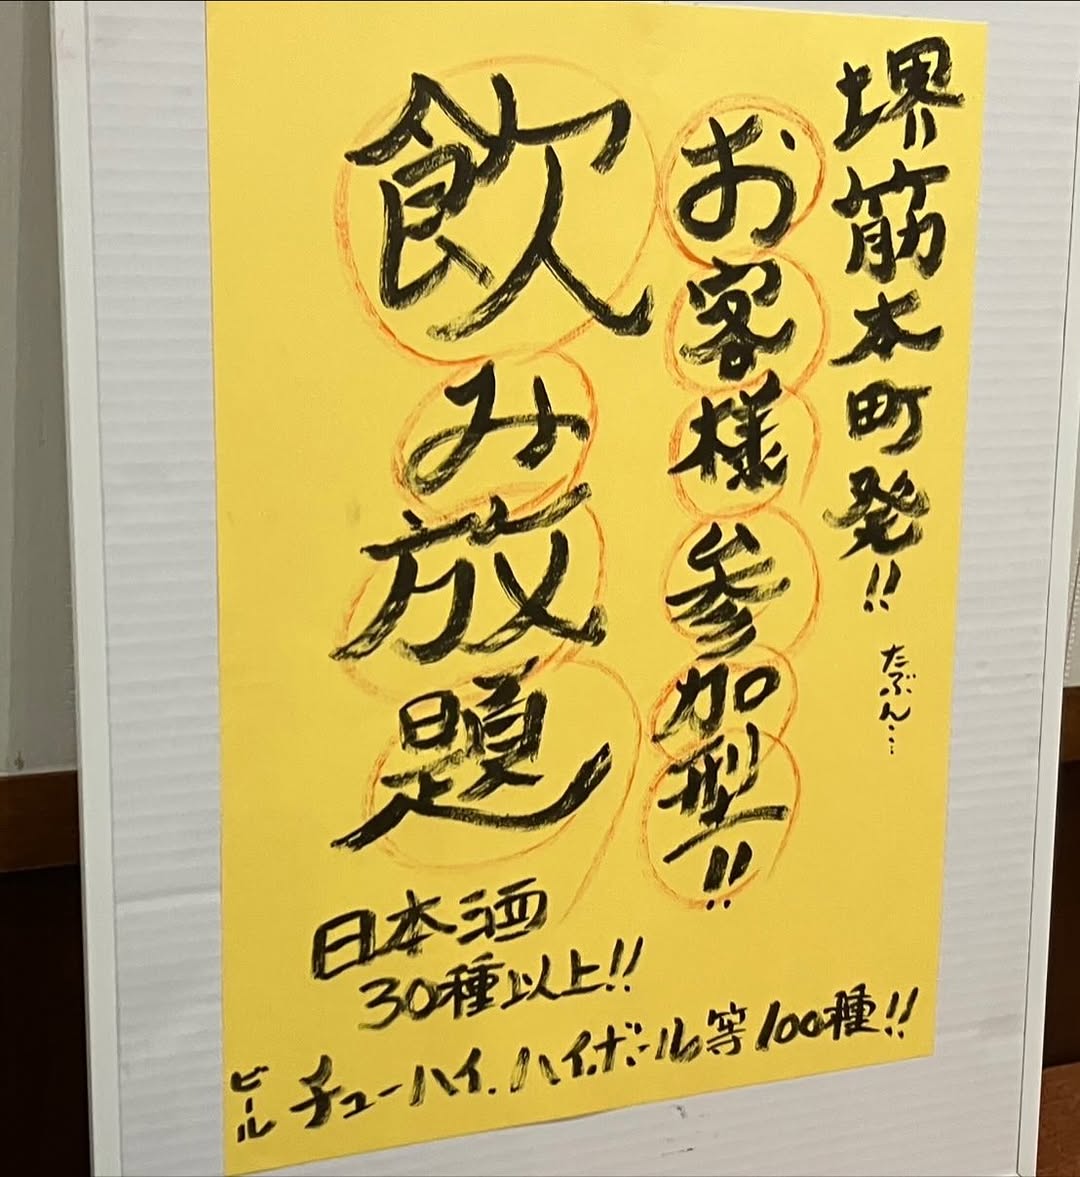 堺筋本町発!!
たぶん…
お客様参加型!!
飲み放題
日本酒
30種以上!!
ビール チューハイ.ハイボール等100種!!